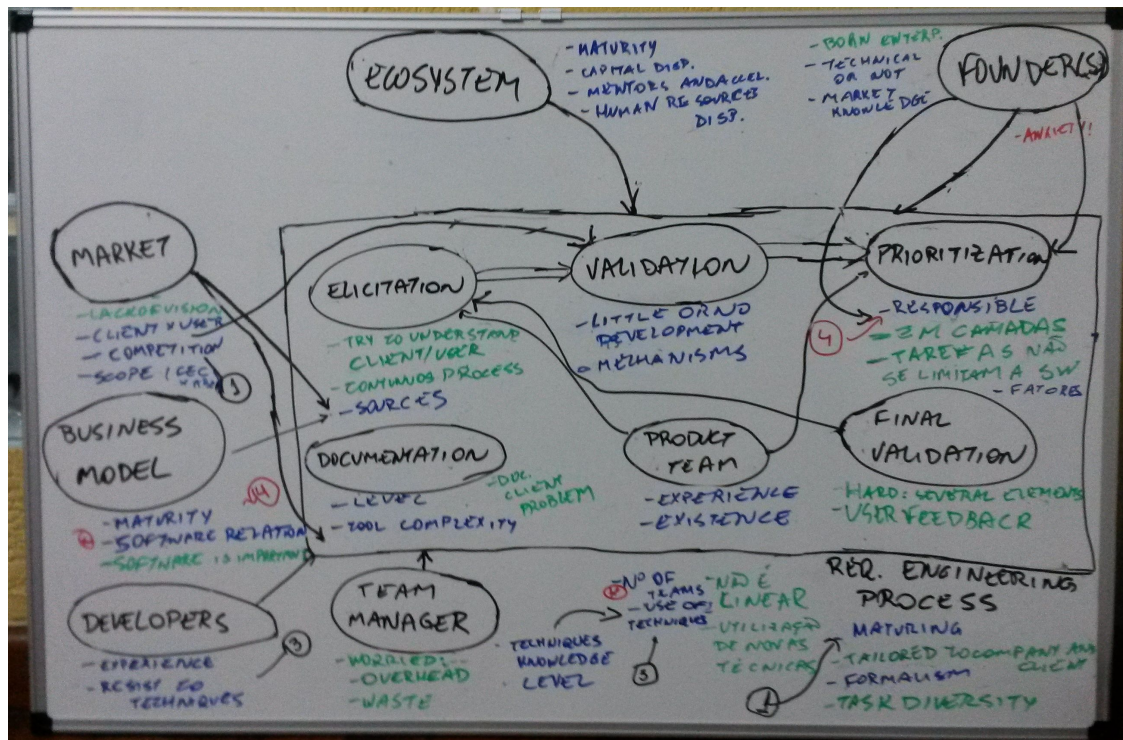 ECOSYSTEM
- MATURITY
- CAPITAL DISP.
- MENTORS AND ACCEL.
- HUMAN RESOURCES
DISP.
- BORN ENTERP.
- TECHNICAL
OR NOT
- MARKET
KNOWLEDGE
FOUNDER(S)
- ANXIETY!
MARKET
- LACK OF VISION
- CLIENT x USER
- COMPETITION
- SCOPE
1
ELICITATION
- TRY TO UNDERSTAND
CLIENT/USER
- CONTUNOS PROCESS
- SOURCES
VALIDATION
- LITTLE OR NO
DEVELOPMENT
MECHANISMS
PRIORITIZATION
- RESPONSIBLE
4
- EM CAMADAS
- TAREFAS NÃO
SE LIMITAM A SW
- FATORES
BUSINESS
MODEL
4
- MATURITY
- SOFTWARE RELATION
- SOFTWARE IS IMPORTAN
DOCUMENTATION
- LEVEL
- TOOL COMPLEXITY
- DOC.
CLIENT
PROBLEM
PRODUCT
TEAM
- EXPERIENCE
- EXISTENCE
FINAL
VALIDATION
- HARD: SEVERAL ELEMENTS
- USER FEEDBACK
DEVELOPERS
- EXPERIENCE
- RESIST TO
TECHNIQUES
3
TEAM
MANAGER
- WORRIED:
- OVERHEAD
- WASTE
TECHNIQUES
KNOWLEDGE
LEVEL
- Nº OF
TEAMS
- USE OF
TECHNIQUES
- NÃO É
LINEAR
- UTILIZAÇÃO
DE NOVAS
TÉCNICAS
REQ. ENGINEERING
PROCESS
MATURING
- TAILORED TO COMPANY AND
CLIENT
- FORMALISM
- TASK DIVERSITY